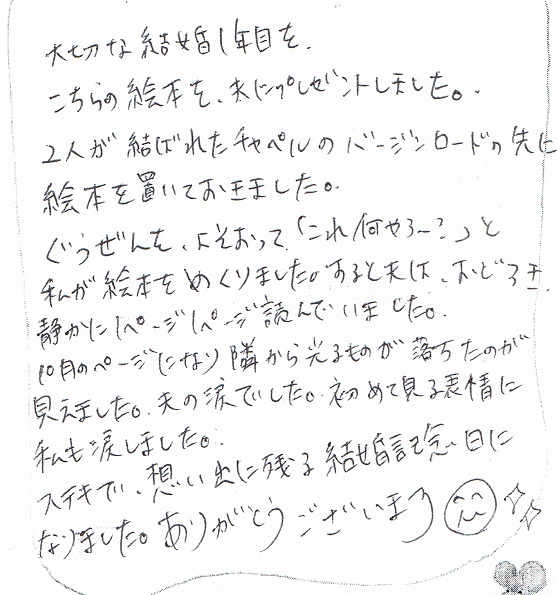 大切な結婚1年目を、
こちらの絵本を、夫にプレゼントしました。
2人が結ばれたチャペルのバージンロードの先に
絵本を置いておきました。
ぐうぜんを、よそおって「これ何やろ〜?」と
私が絵本をめくりました。すると夫は、おどろき
静かに1ページ1ページ読んでいました。
10月のページになり隣から光るものが落ちたのが
見えました。夫の涙でした。初めて見る表情に
私も涙しました。
ステキで、想い出に残る結婚記念日に
なりました。ありがとうございます